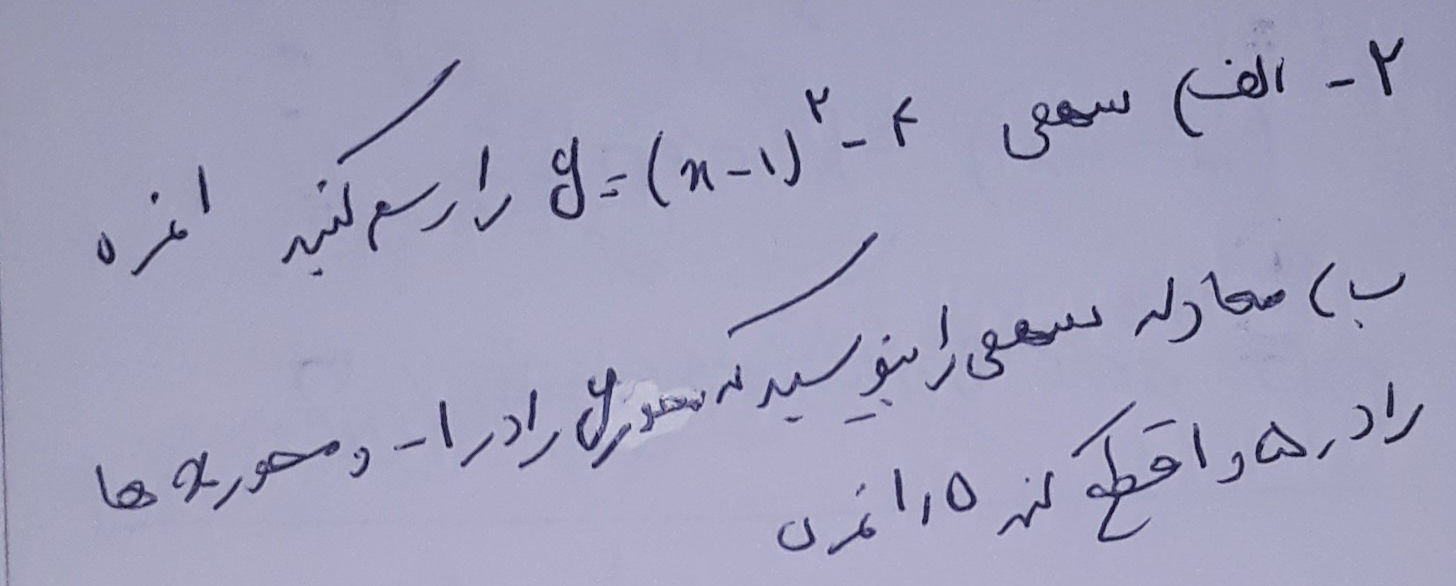 ۲- الف) سهمی y=(x-1)^۲-۴ را رسم کنید ۱ نمره
ب) معادله سهمی را بنویسید که محور y را در ۱- و محور x ها
را در ۵ و ۱ قطع کند ۱٫۵ نمره